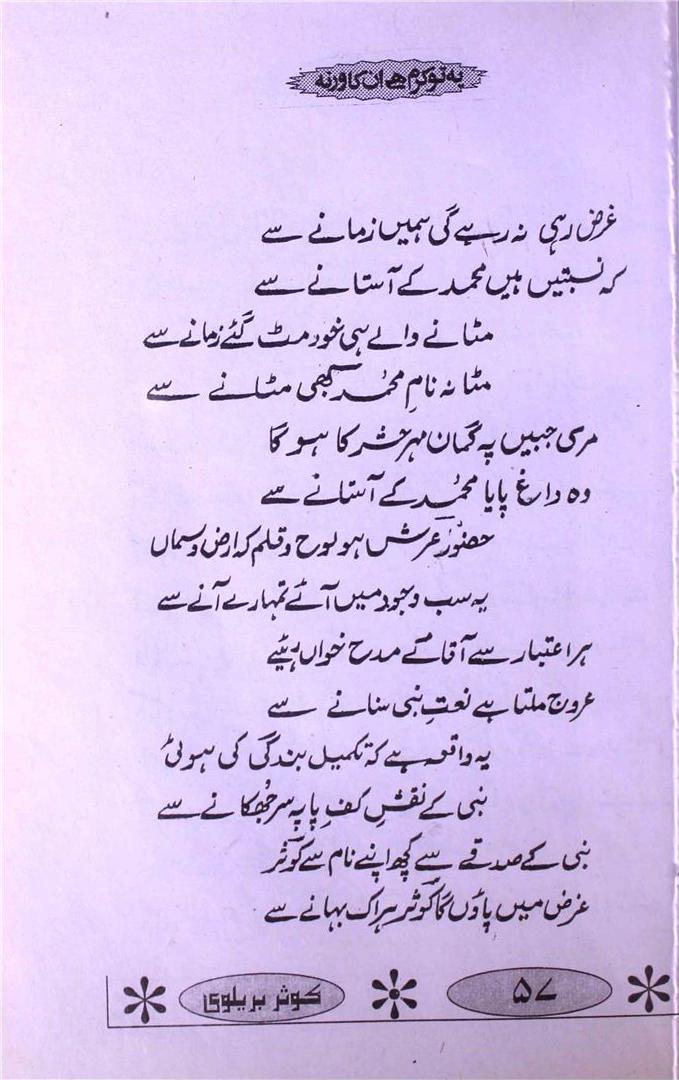 یہ تو کرم ھے ان کا ورنہ
غرض رہی نہ رہے گی ہمیں زمانے سے
کہ نسبتیں ہیں محمد کے آستانے سے
مٹانے والے ہی خود مٹ گئے زمانے سے
مٹا نہ نامِ محمد کبھی مٹانے سے
مری جبیں پہ گمان مہر حشر کا ہو گا
وہ داغ پایا محمد کے آستانے سے
حضور عرش ہو لوح و قلم کہ ارض و سماں
یہ سب وجود میں آئے تمہارے آنے سے
ہر اعتبار سے آقا کے مدح خواں رہئیے
عروج ملتا ہے نعتِ نبی سنانے سے
یہ واقعہ ہے کہ تکمیل بندگی کی ہوئی
نبی کے نقشِ کفِ پا پہ سر جھکانے سے
نبی کے صدقے سے کچھ اپنے نام سے کوثر
غرض میں پاؤں گا کوثر ہر اک بہانے سے
۵۷
کوثر بریلوی